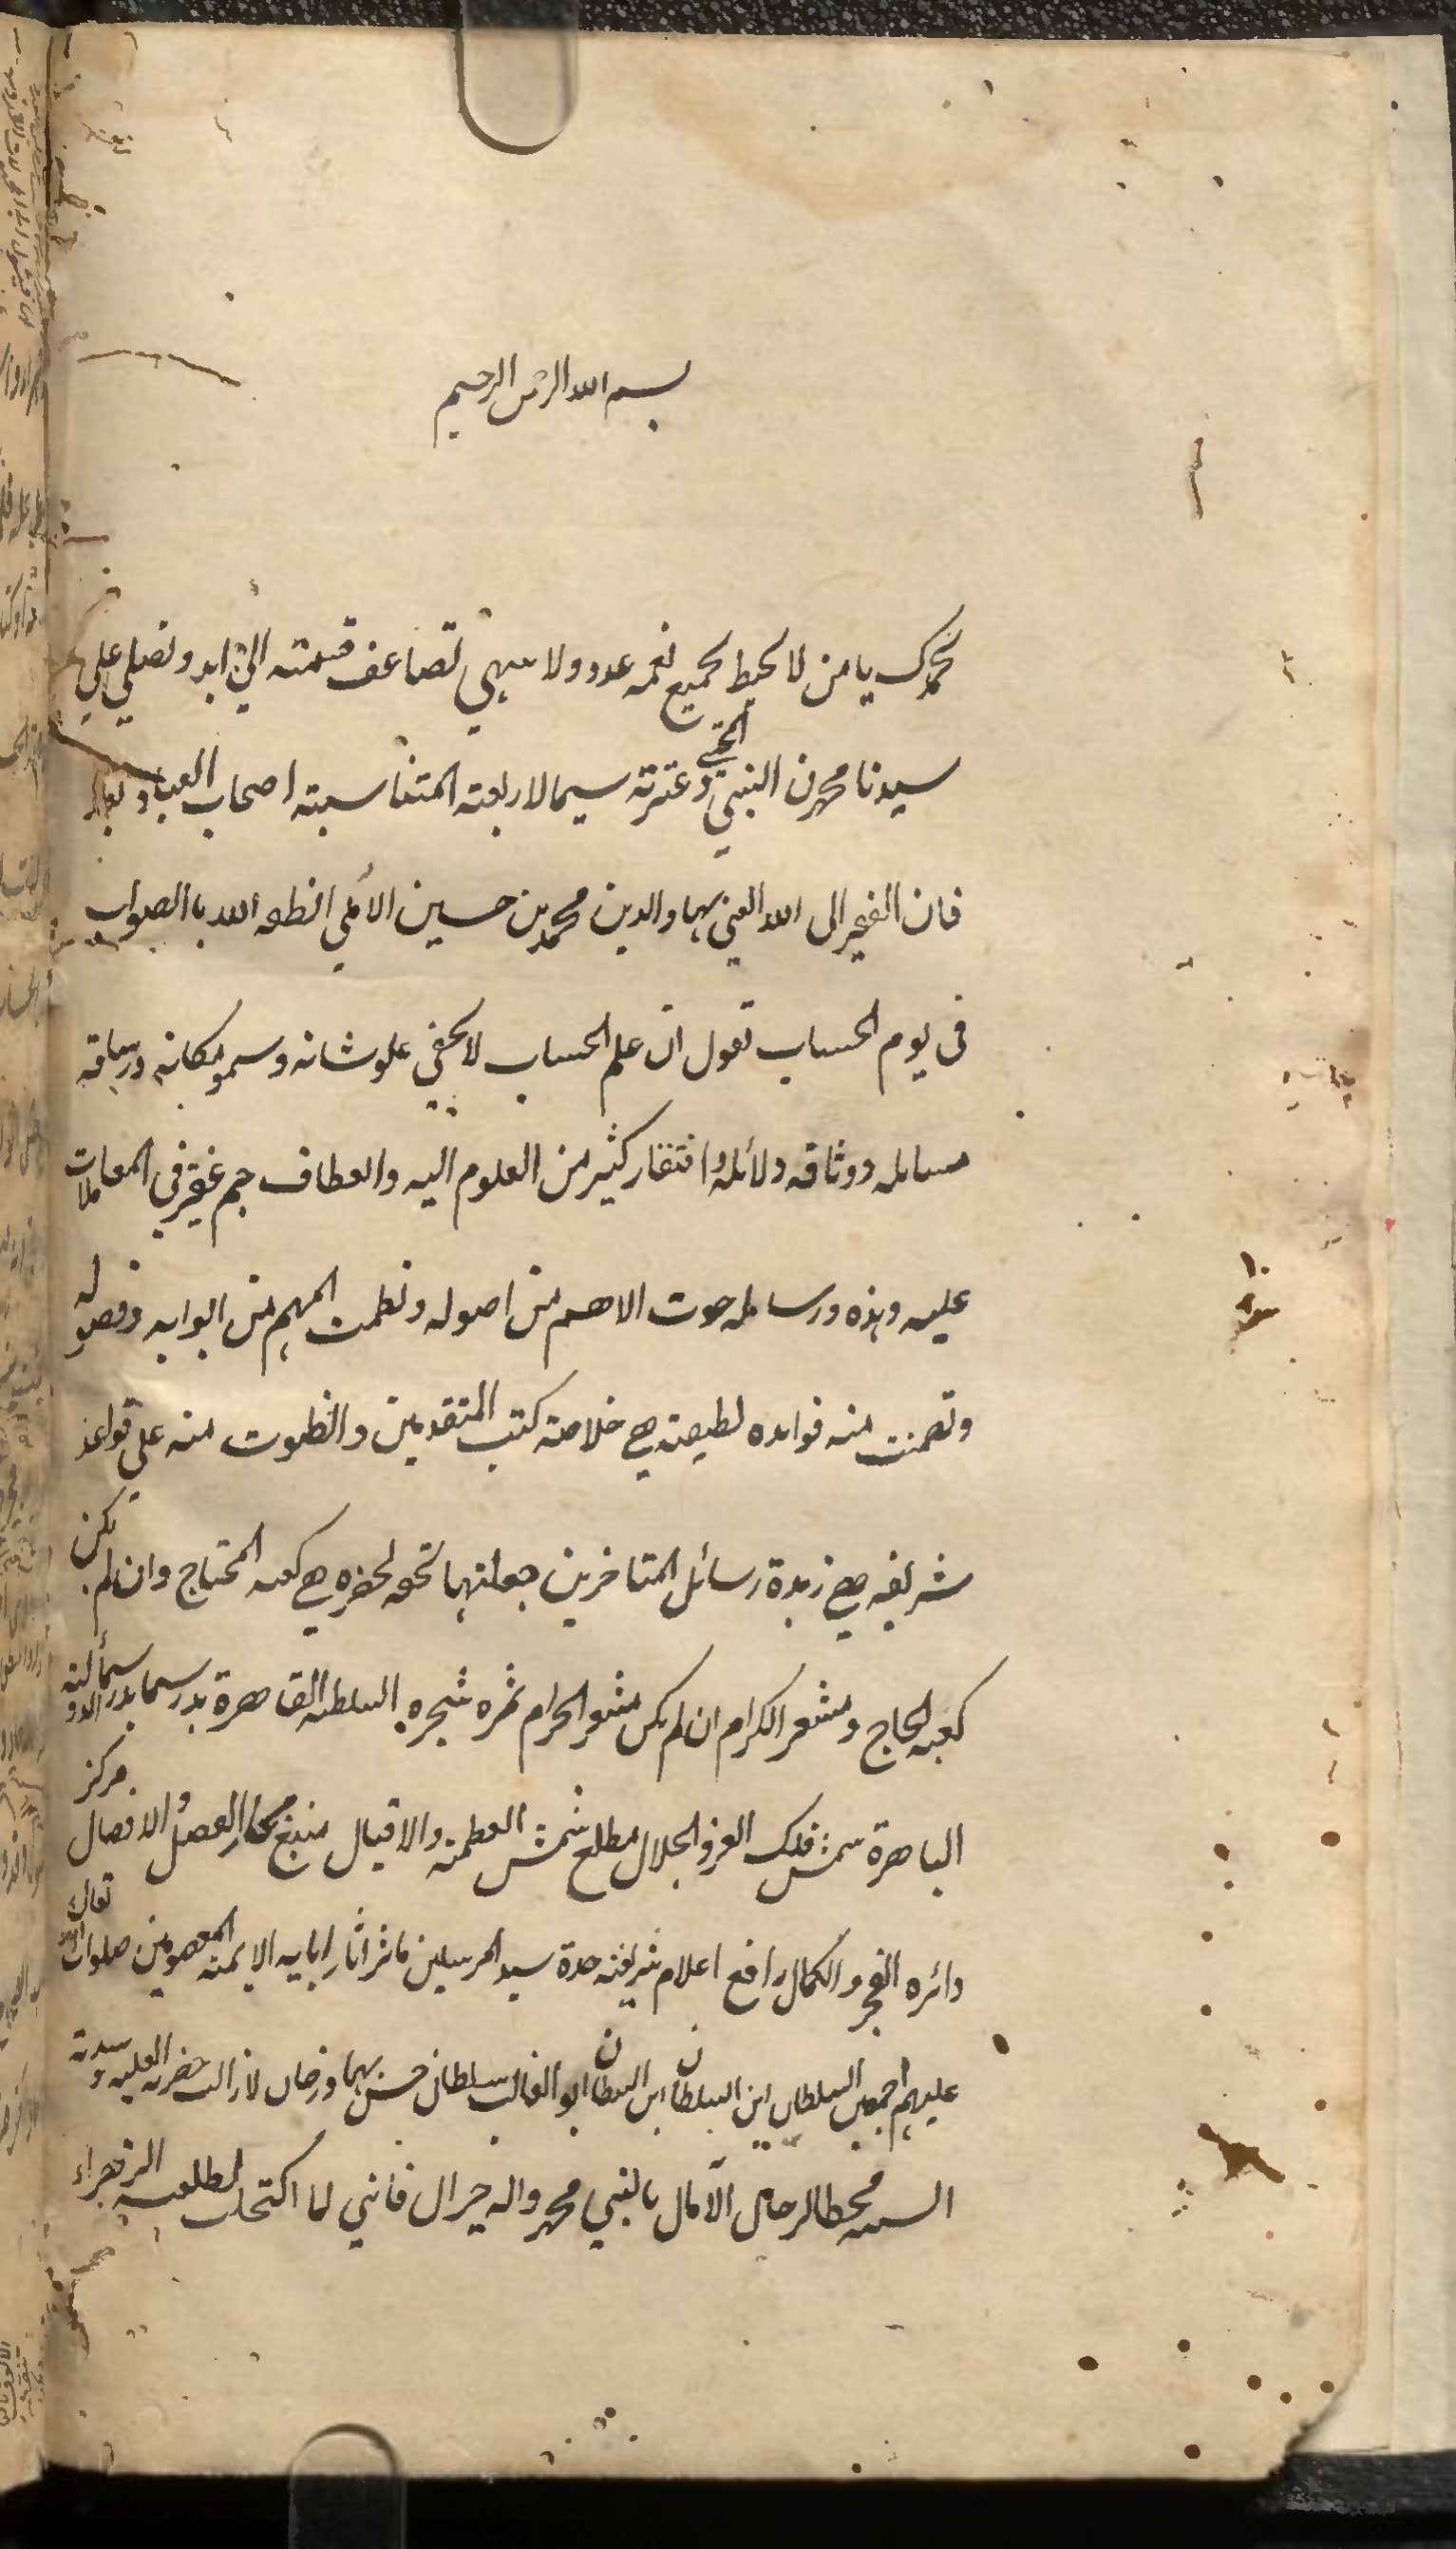 بسم الله الرحمن الرحيم
نحمدك يا من لا يحيط بجميع نعمه عدد ولا ينتهي تضاعف قسمته الى ابد ونصلي على
سيدنا محمدن النبي المجتبى وعترته سيما الاربعة المتناسبة اصحاب العبا وبعد
فان الفقير الى الله الغني بهاء الدين محمد بن حسين الآملي انطقه الله باالصواب
فى يوم الحساب تقول ان علم الحساب لا يخفى علو شانه وسمو مكانه ورشاقة
مسايله ووثاقه دلائله وافتقار كثير من العلوم اليه وانعطاف جم غفير في المعاملات
عليه وهذه ورساله حوت الاهم من اصوله ونظمت المهم من ابوابه وفصوله
وتضمنت منه فوايده لطيفة هي خلاصة كتب المتقدمين وانطوت منه على قواعد
شريفه هي زبدة رسائل المتاخرين جعلتها تحفه لحضره هي كعبه المحتاج وان لم يكن
كعبه الحاج ومشعر الكرام ان لم يكن مشعر الحرام ثمره شجره السلطنه القاهرة بدر سما بدر سماء الدولة
الباهرة شمس فلك العز والجلال مطلع شمس العظمة والاقبال منبع بحار الفضل والافضال مركز
دائره الفخر والكمال رافع اعلام شريفة جدة سيد المرسلين ماثر اثار ابايه الايمة المعصومين صلوات الله تعالى
عليهم اجمعين السلطان ابن السلطان ابن السلطان ابو الغالب سلطان حسن بهادر خان لا زالت حضرته العلية وسدته
السنيه محط الرحال الآمال بالنبي محمد واله خير ال فانني لما اكتحلت لطلعه الزهراء